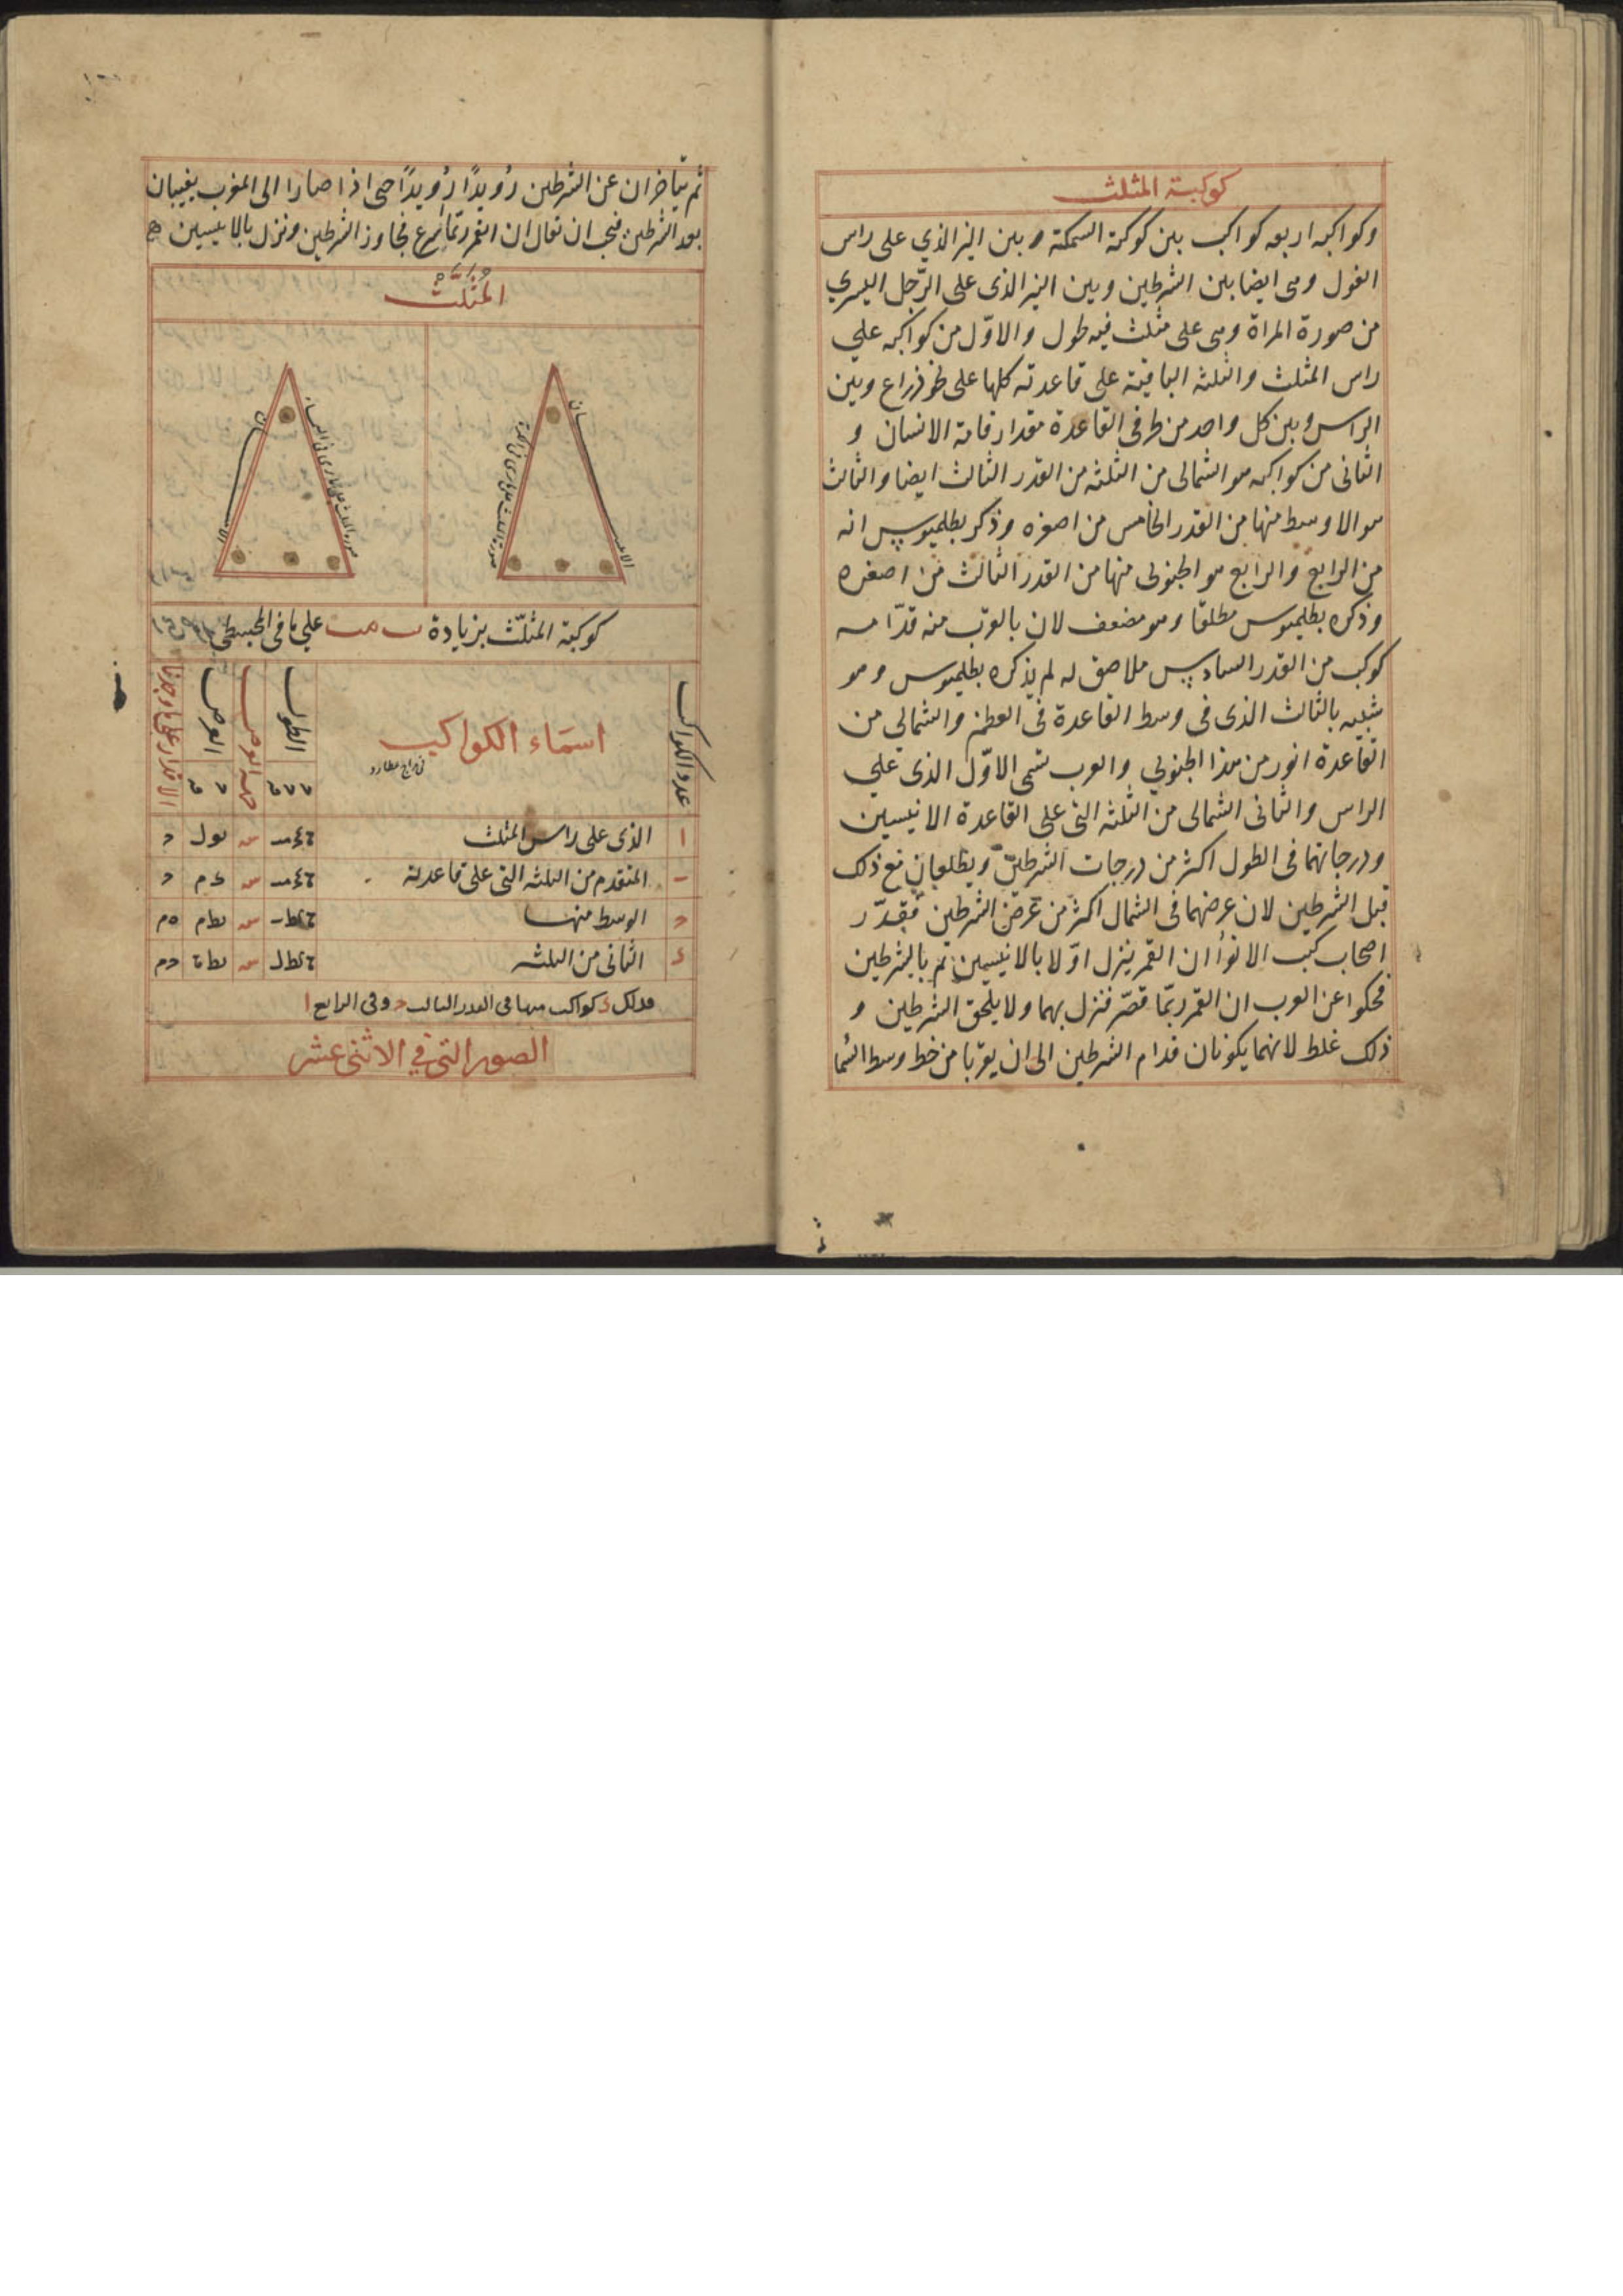 كوكبة المثلث
وكواكبه اربعه كواكب بين كوكبة السمكة وبين النير الذي على راس
الغول وهى ايضا بين الشرطين وبين النير الذى على الرّجل اليسري
من صورة المراة وهى على مثلث فيه طول والاوّل من كواكبه علي
راس المثلث والثلثه الباقية على قاعدته كلها على نحو ذراع وبين
الراس وبين كل واحد من طرفى القاعدة مقدار قامة الانسان و
الثانى من كواكبه هو الشمالى من الثلثه من القدر الثالث ايضا والثالث
هو الاوسط منها من القدر الخامس من اصغره وذكر بطلميوس انه
من الرابع والرابع هو الجنوبى منها من القدر الثالث من اصغره
وذكره بطلميوس مطلقا وهو مضعف لان بالقرب منه قدّامه
كوكب من القدر السادس ملاصق له لم يذكره بطلميوس وهو
شبيه بالثالث الذى فى وسط القاعدة فى العظم والشمالى من
القاعدة انور من هذا الجنوبي والعرب تسمى الاوّل الذى علي
الراس والثانى الشمالى من الثلثه التى على القاعدة الانيسين
ودرجاتهما فى الطول اكثر من درجات الشرطين ويطلعان مع ذلك
قبل الشرطين لان عرضهما فى الشمال اكثر من عرض الشرطين فقدّر
اصحاب كتب الانوأ ان القمر ينزل اوّلا بالانيسين ثم بالشرطين
فحكوا عن العرب ان القمر ربّما قصّر فنزل بهما ولا يلحق الشرطين و
ذلك غلط لانهما يكونان قدام الشرطين الى ان يقربا من خط وسط السّما
ثم يتاخران عن الشرطين رُويدًا رُويدًا حتى اذا صارا الى المغرب يغيبان
بعد الشرطين فيجب ان يقال ان القمر ربّما اسرع فجاوز الشرطين ونزل بالانيسين
المُثَلَّث
الانيسان
صورة المثلث على ما يرى فى الكرة
صورة المثلث على ما يرى فى السماء
الانيسان
كوكبة المثلّث بزيادة ىب مب علي ما فى المجسطى
عدد الكواكب
اسمَاء الكواكب
الطول
جهة العرض
العرض
الاقدار على ما وجدنا
ا الذى على راس المثلث
المتقدم من الثلثه التى على قاعدته
الوسط منها
الثانى من الثلثه
فذلك د كواكب منها فى القدر الثالث ح وفى الرابع ا
الصور التي في الاثنى عشر